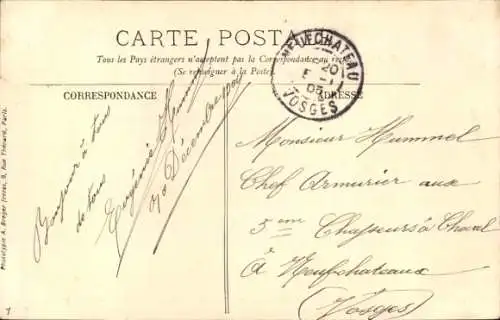 CARTE POSTALE
Tous les Pays étrangers n'acceptent pas la Correspondance au recto
(Se renseigner à la Poste)
CORRESPONDANCE
ADRESSE
NEUFCHATEAU
20
05
VOSGES
Bonjour à tous
de tous
Eugénie Hummel
Décembre
Monsieur Hummel
Chef Armurier aux
5em Chasseurs à Cheval
à Neufchateaux
(Vosges)
Phototypie A. Breger frères, 9, Rue Thénard, Paris.
1